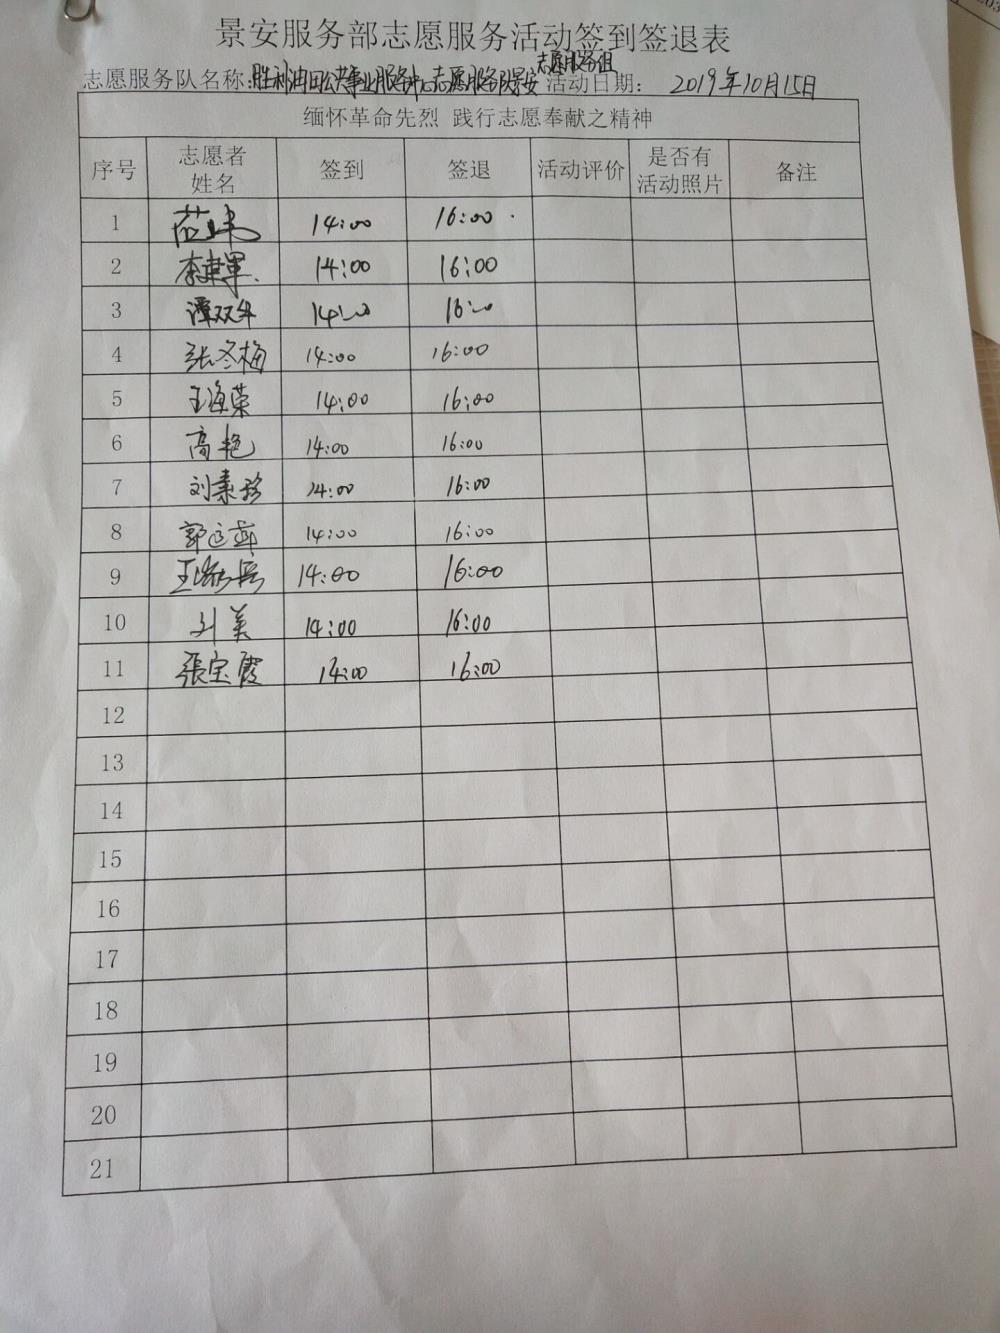 景安服务部志愿服务活动签到签退表
志愿服务组
志愿服务队名称:胜利油田公共事业服务中心志愿服务队景安 活动日期: 2019年10月15日
缅怀革命先烈 践行志愿奉献之精神
序号 志愿者姓名 签到 签退 活动评价 是否有活动照片 备注
1 14:00 16:00
2 李建军 14:00 16:00
3 谭双年 14:00 16:00
4 张冬梅 14:00 16:00
5 王海荣 14:00 16:00
6 高艳 14:00 16:00
7 刘素珍 14:00 16:00
8 郭 14:00 16:00
9 王 14:00 16:00
10 刘美 14:00 16:00
11 張宝霞 14:00 16:00
12
13
14
15
16
17
18
19
20
21